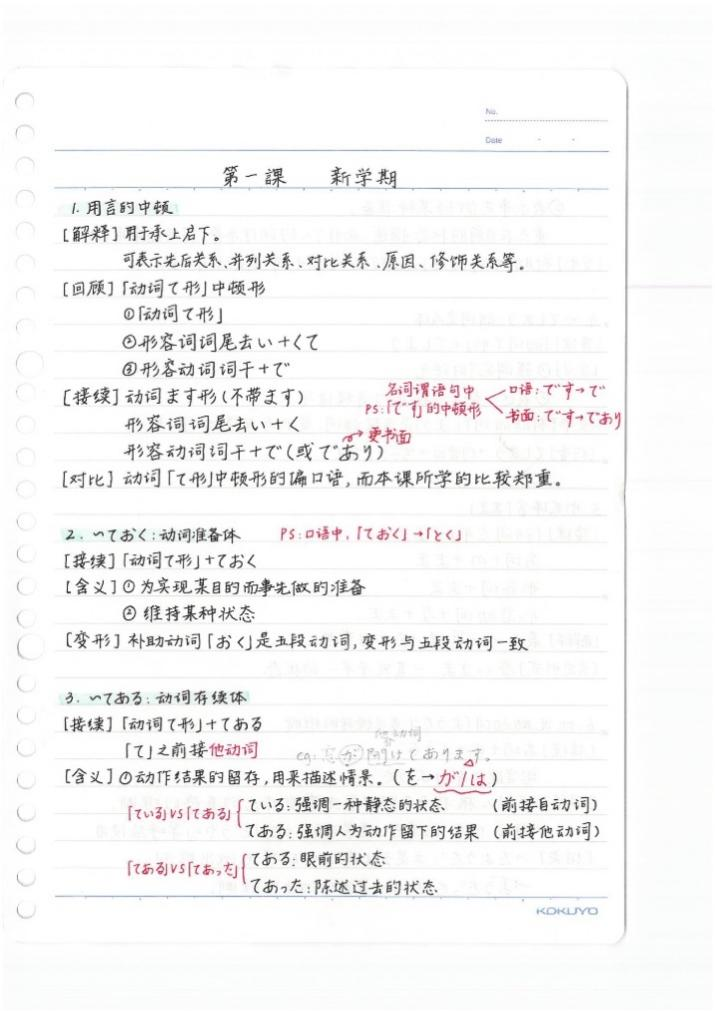 No.
Date
第一課 新学期
1. 用言的中顿
[解释] 用于承上启下。
可表示先后关系、并列关系、对比关系、原因、修饰关系等。
[回顾]「动词て形」中顿形
①「动词て形」
②形容词词尾去い+くて
③形容动词词干+で
[接续] 动词ます形(不带ます)
形容词词尾去い+く
形容动词词干+で(或であり)
→更书面
名词谓语句中
PS:「です」的中顿形
口语:です→で
书面:です→であり
[对比] 动词「て形」中顿形的偏口语,而本课所学的比较郑重。
2. 〜ておく:动词准备体 PS:口语中,「ておく」→「とく」
[接续]「动词て形」+ておく
[含义]①为实现某目的而事先做的准备
②维持某种状态
[变形] 补助动词「おく」是五段动词,变形与五段动词一致
3. 〜てある:动词存续体
[接续]「动词て形」+てある
「て」之前接他动词
他动词
eg: 窓が開けてあります。
[含义]①动作结果的留存,用来描述情景。(を→が/は)
「ている」VS「てある」
ている:强调一种静态的状态 (前接自动词)
てある:强调人为动作留下的结果 (前接他动词)
「てある」VS「てあった」
てある:眼前的状态
てあった:陈述过去的状态
KOKUYO